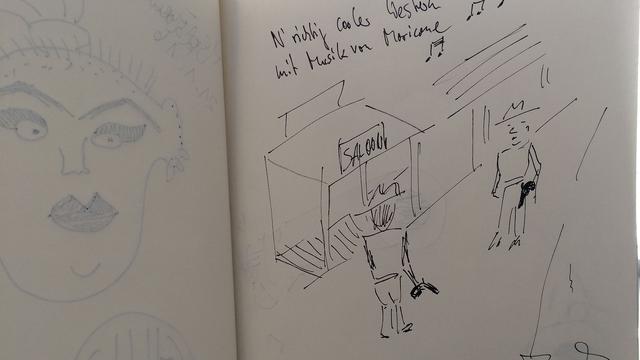 N' richtig cooler Western
mit Musik von Moricone
SALOON